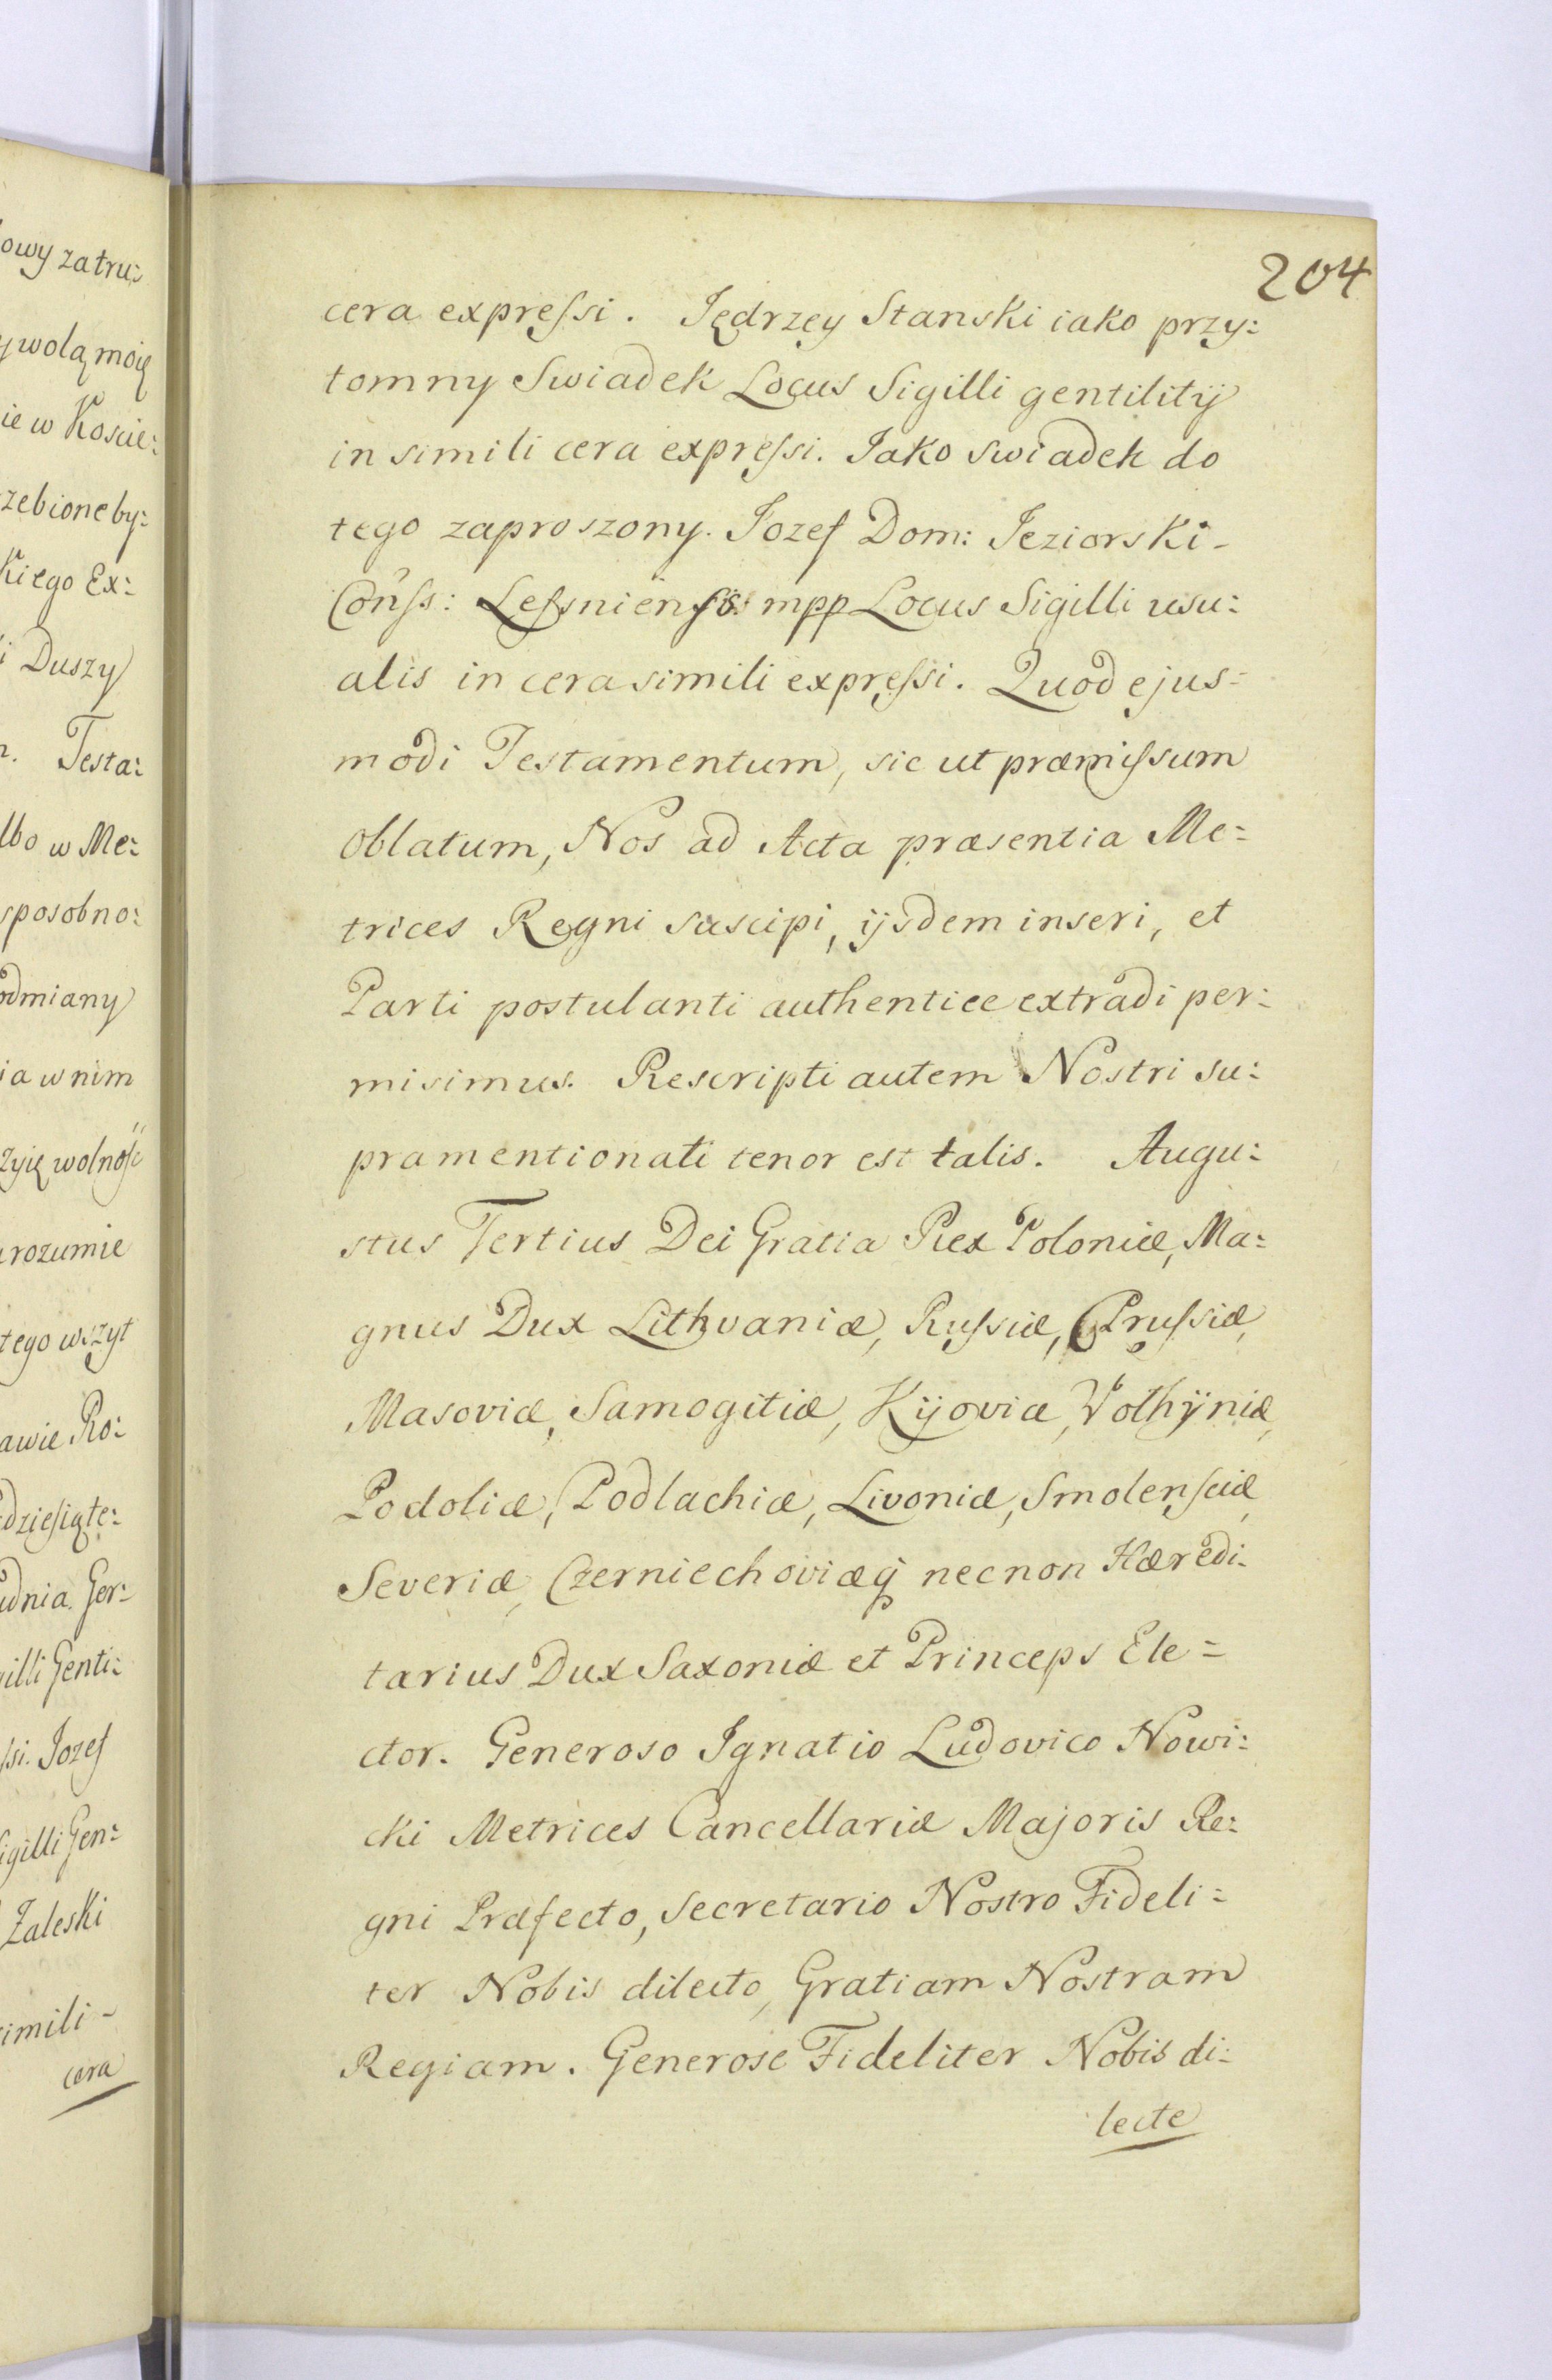 owy zatru:
wolą moię
ie w Koscie:
zebione by:
kiego Ex:
i Duszy
Testa:
lbo w Me:
sposobno:
odmiany
ia w nim
żyię wolnośc
rozumie
tego wszyt
awie Ro:
dziesiąte:
udnia. Ger:
gilli Genti:
ſsi. Jozef
Sigilli Gen:
Zaleski
simili -
cera
204
cera expreſsi. Jędrzey Stanski iako przy:
tomny Swiadek Locus Sigilli gentilitij
in simili cera expreſsi. Jako swiadek do
tego zaproszony. Jozef Dom: Jeziorski -
Conſs: Leſsniensis mpp Locus Sigilli usu:
alis in cera simili expreſsi. Quod ejus=
modi Testamentum, sic ut præmiſsum
oblatum, Nos ad Acta præsentia Me=
trices Regni suscipi, ijsdem inseri, et
Parti postulanti authentice extradi per:
misimus. Rescripti autem Nostri su:
pramentionati tenor est talis. Augu:
stus Tertius Dei Gratia Rex Poloniæ, Ma:
gnus Dux Lithvaniæ, Ruſsiæ, Pruſsiæ,
Masoviæ, Samogitiæ, Kijoviæ, Volhÿniæ,
Podoliæ, Podlachiæ, Livoniæ, Smolenſciæ,
Severiæ, Czerniechoviæq̃ necnon Hæredi-
tarius Dux Saxoniæ et Princeps Ele=
ctor. Generoso Ignatio Ludovico Nowi:
cki Metrices Cancellariæ Majoris Re:
gni Præfecto, Secretario Nostro Fideli=
ter Nobis dilecto, Gratiam Nostram
Regiam. Generose Fideliter Nobis di:
lecte